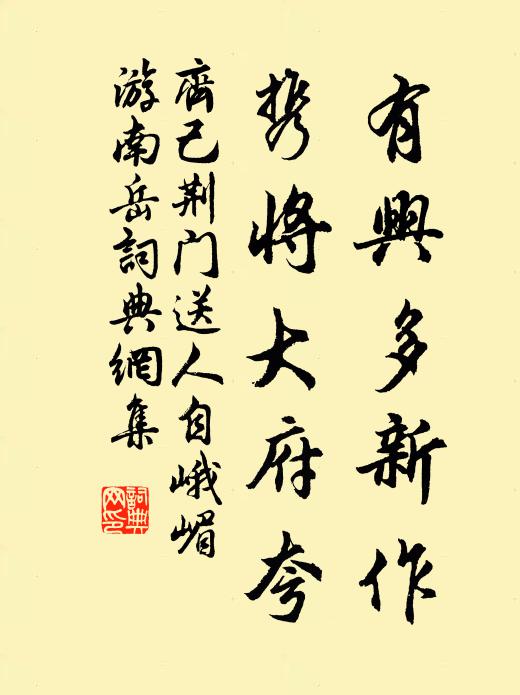 有興多新作
携將大府夸
齊己荆门送人自峨嵋
游南岳詞典網集
詞典网印